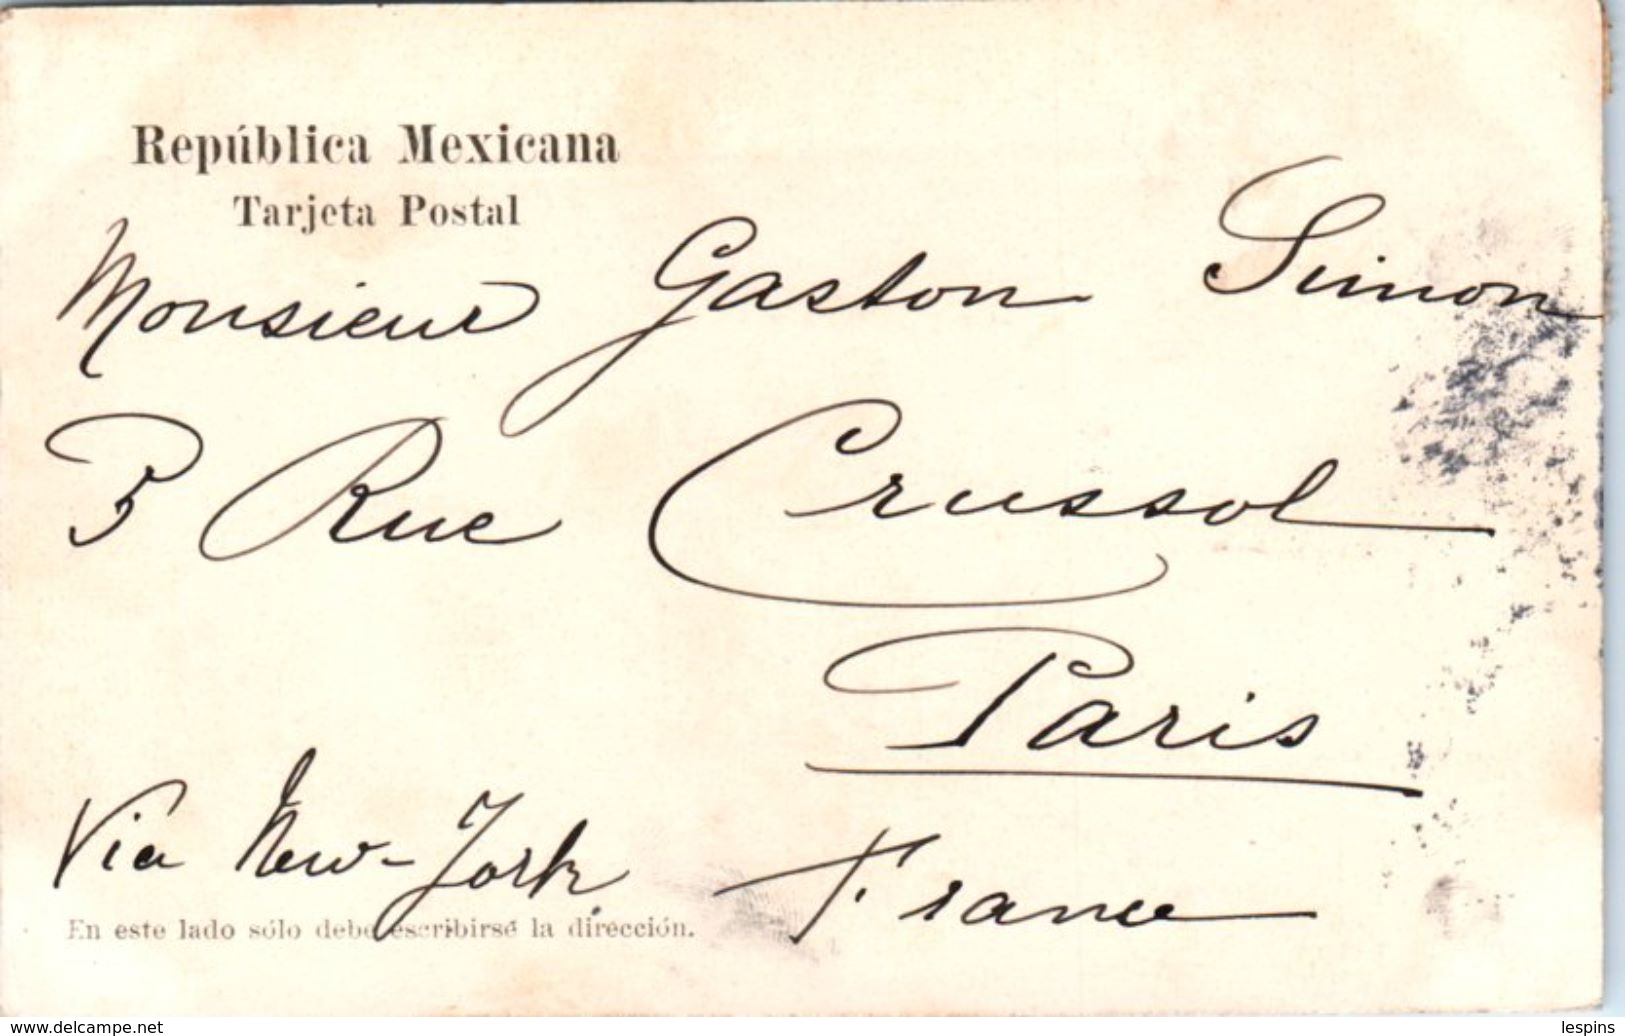 República Mexicana
Tarjeta Postal
Monsieur Gaston Simon
5 Rue Crussol
Paris
Via New-York France
En este lado sólo debe escribirse la dirección.
www.delcampe.net
lespins